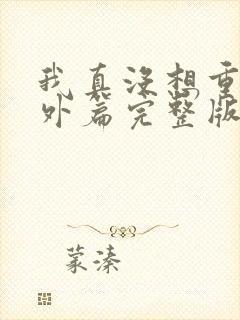 我真没想重
外篇完整版
蒙溱